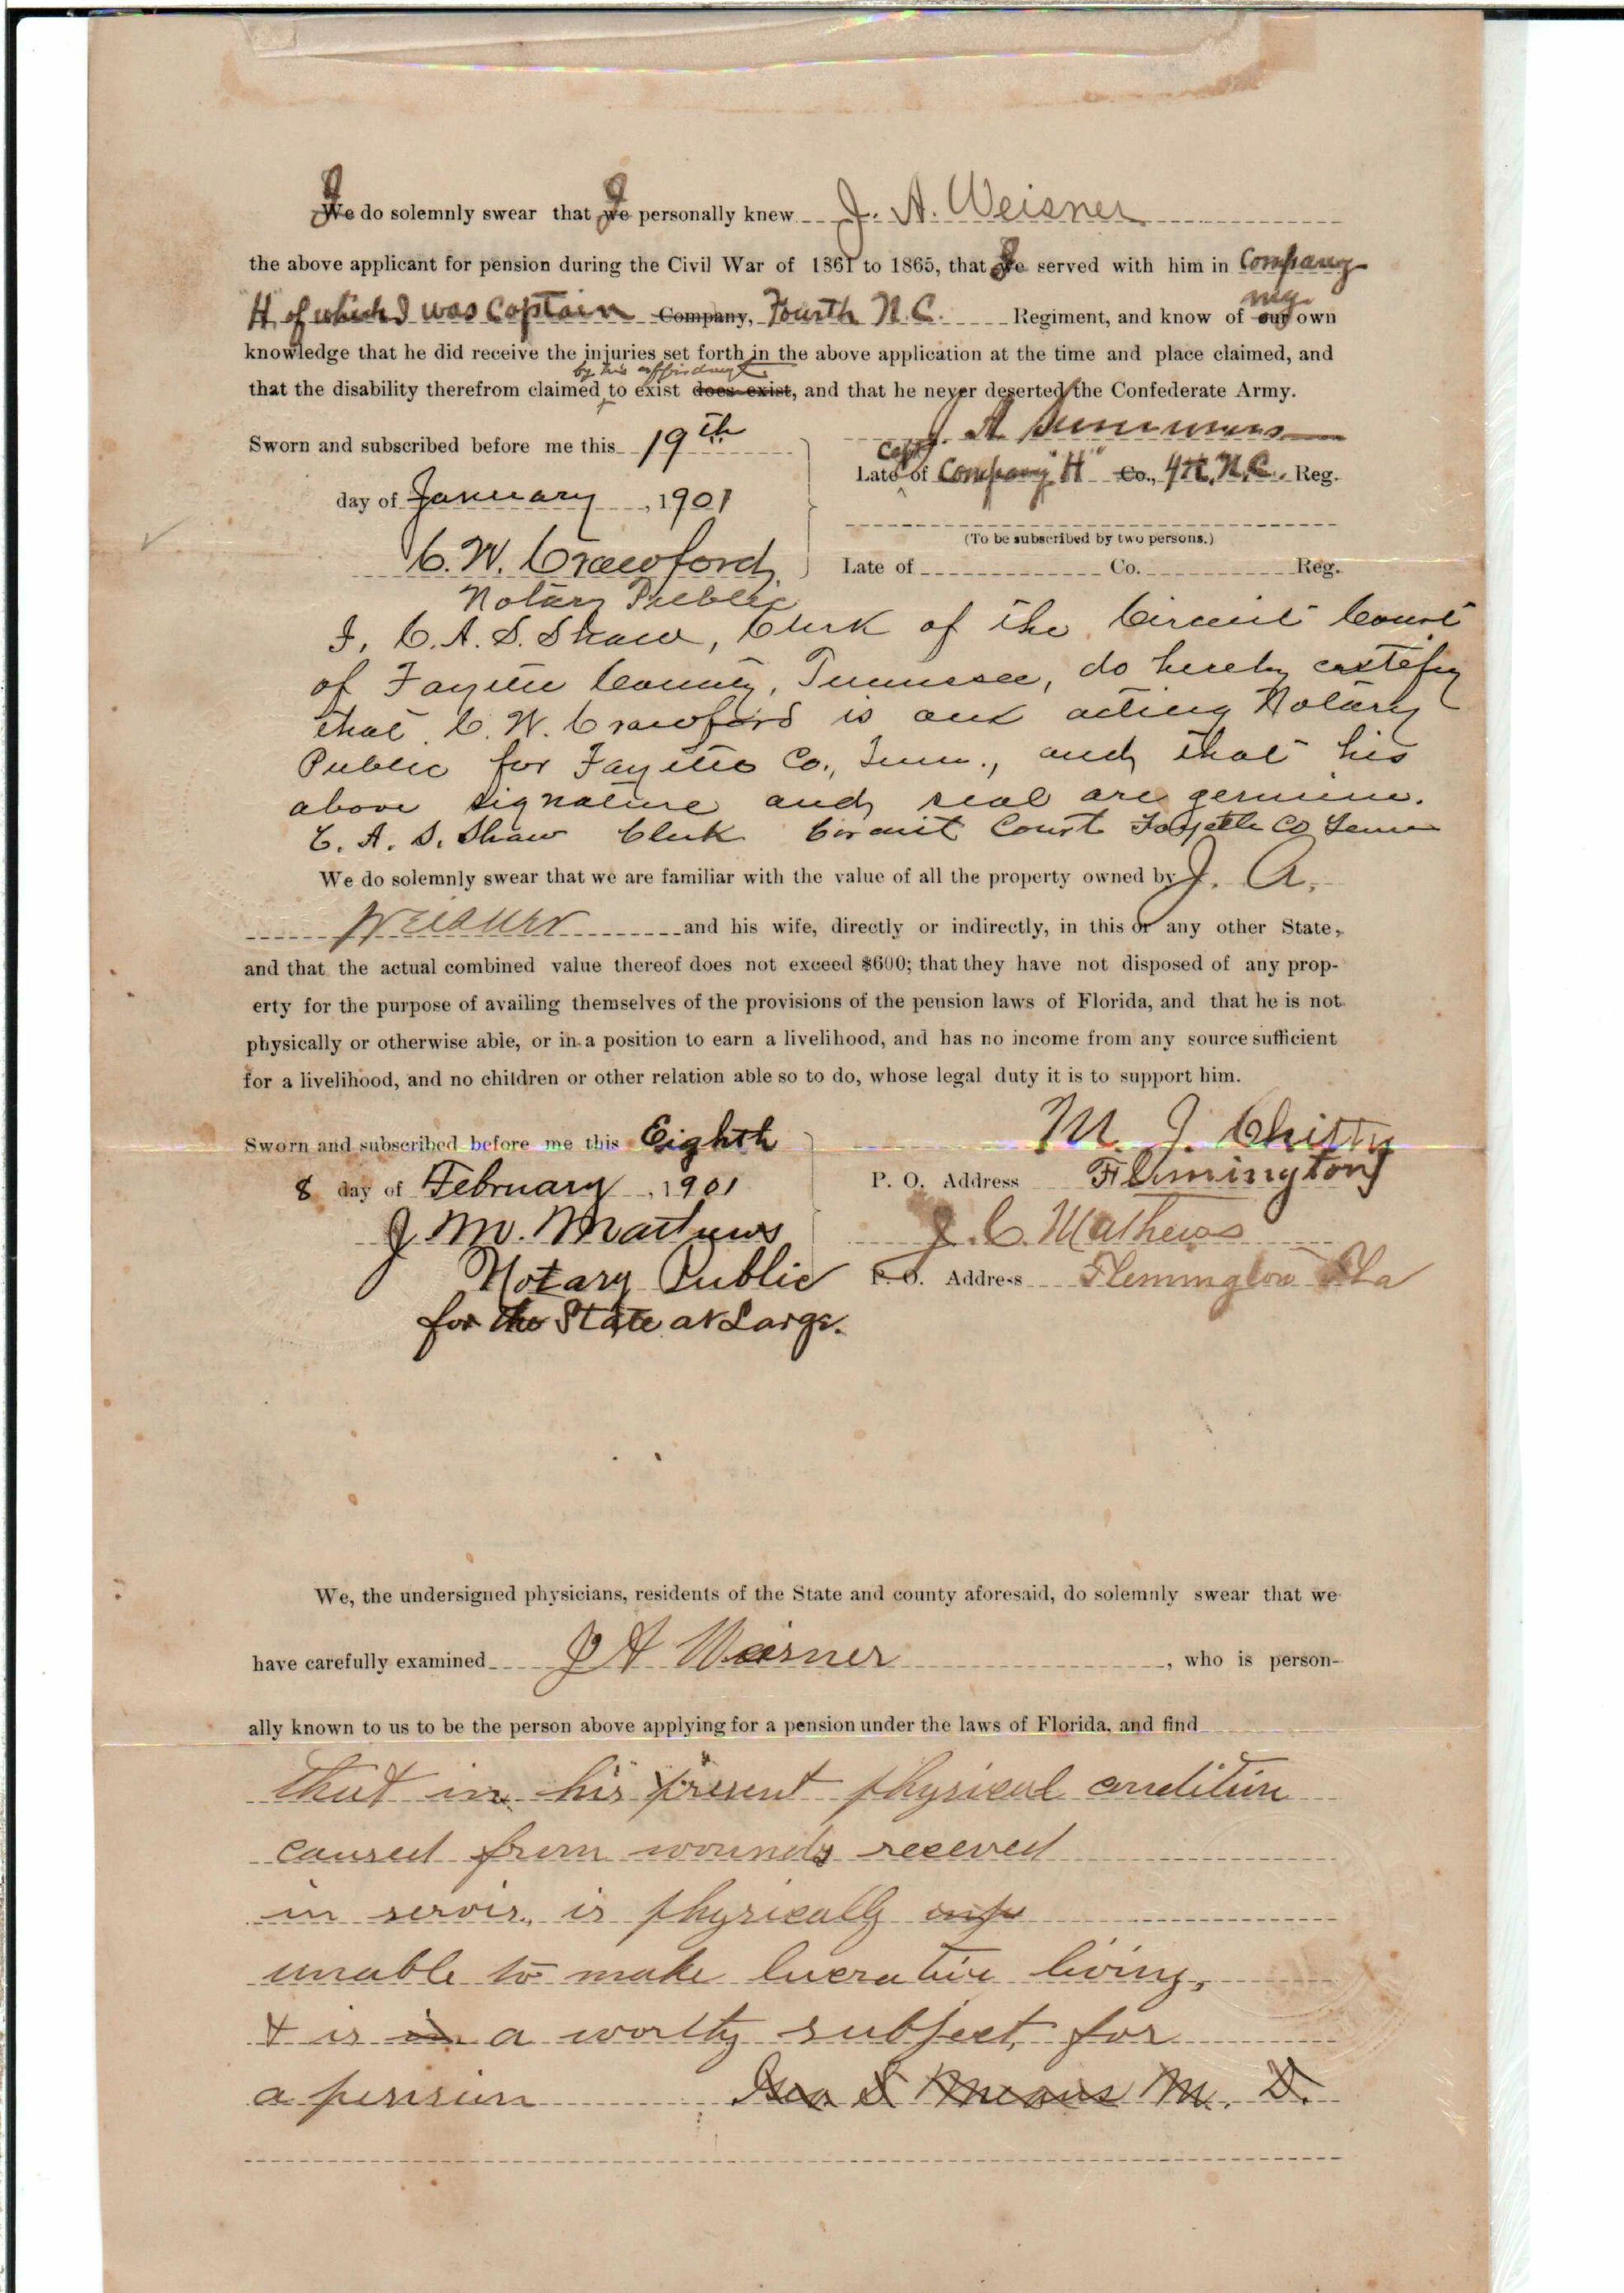 I do solemnly swear that I personally knew J. A. Weisner
the above applicant for pension during the Civil War of 1861 to 1865, that I served with him in Company
"H" of which I was Captain Company, Fourth N.C. Regiment, and know of my own
knowledge that he did receive the injuries set forth in the above application at the time and place claimed, and
by his affidavit
that the disability therefrom claimed to exist does exist, and that he never deserted the Confederate Army.
Sworn and subscribed before me this 19th
day of January, 1901
C. W. Crawford
Notary Public
J. A. Summers
Capt
Late of Company "H" Co., 4th N.C. Reg.
(To be subscribed by two persons.)
Late of Co. Reg.
I, C. A. S. Shaw, Clerk of the Circuit Court
of Fayette County, Tennessee, do hereby certify
that C. W. Crawford is and acting Notary
Public for Fayette Co., Tenn., and that his
above signature and seal are genuine.
C. A. S. Shaw Clerk Circuit Court Fayette Co Tenn
We do solemnly swear that we are familiar with the value of all the property owned by J. A.
Weisner and his wife, directly or indirectly, in this or any other State,
and that the actual combined value thereof does not exceed $600; that they have not disposed of any prop-
erty for the purpose of availing themselves of the provisions of the pension laws of Florida, and that he is not
physically or otherwise able, or in a position to earn a livelihood, and has no income from any source sufficient
for a livelihood, and no children or other relation able so to do, whose legal duty it is to support him.
Sworn and subscribed before me this Eighth
8 day of February, 1901
J. M. Mathews
Notary Public
for the State at Large.
M. J. Chitty
P. O. Address Flemington
J. C. Mathews
P. O. Address Flemington Fla
We, the undersigned physicians, residents of the State and county aforesaid, do solemnly swear that we
have carefully examined J A Weisner, who is person-
ally known to us to be the person above applying for a pension under the laws of Florida, and find
that in his present physical condition
caused from wounds receved
in servis, is physically
unable to make lucrative living,
& is in a worthy subject for
a pension Geo S Means M. D.